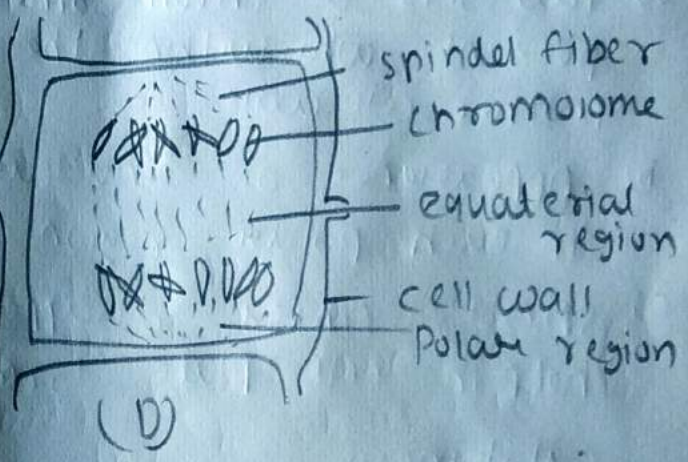 spindel fiber
chromosome
equaterial
region
cell wall
Polar region
(D)